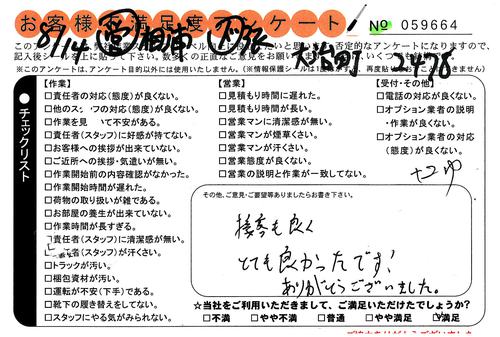 お客様満足度アンケート! № 059664
8/14
記入後シールを上に貼って下さい。数多くの正直なご意見をお願い
※このアンケートは、アンケート目的以外には使用いたしません。
チェックリスト
【作業】
□責任者の対応(態度)が良くない。
□他のス フの対応(態度)が良くない。
□作業を見 て不安がある。
□責任者(スタッフ)に好感が持てない。
□お客様への挨拶が出来ていない。
□ご近所への挨拶・気遣いが無い。
□作業開始前の内容確認がなかった。
□作業開始時間が遅れた。
□荷物の取り扱いが雑である。
□お部屋の養生が出来ていない。
□作業時間が長すぎる。
□責任者(スタッフ)に清潔感が無い。
者(スタッフ)が汗くさい。
□トラックが汚い。
□梱包資材が汚い。
□運転が不安(下手)である。
□靴下の履き替えをしてない。
□スタッフにやる気がみられない。
【営業】
□見積もり時間に遅れた。
□見積もり時間が長い。
□営業マンに清潔感が無い。
□営業マンが煙草くさい。
□営業マンが汗くさい。
□営業態度が良くない。
□営業の説明と作業が一致してない。
【受付・その他】
□電話の対応が良くない。
□オプション業者の説明
・作業が良くない。
□オプション業者の対応
(態度)が良くない。
その他、ご意見・ご要望等ありましたらお書き下さい。
接客も良く
とても良かったです!
ありがとうございました。
☆当社をご利用いただきまして、ご満足いただけたでしょうか?
□不満 □やや不満 □普通 □やや満足 ☑満足